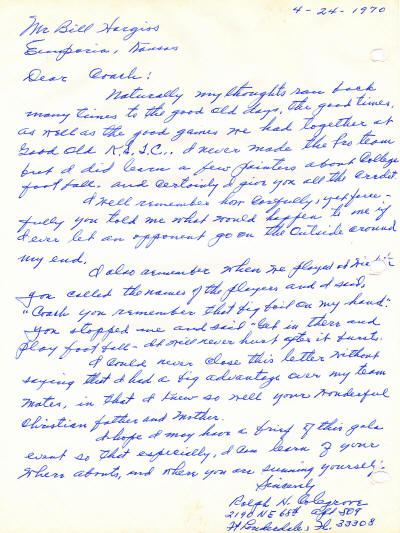 4-24-1970
Mr Bill Hargiss
Emporia, Kansas
Dear Coach:
Naturally my thoughts ran back
many times to the good old days, the good times,
as well as the good games we had together at
Good Old K.S.T.C.. I never made the Pro team
but I did learn a few pointers about College
foot ball. and certainly I give you all the credit
I well remember how carefully, yet force-
fully you told me what would happen to me if
I ever let an opponent go on the outside around
my end.
I also remember when we played at
you called the names of the players and I said,
"Coach you remember that big boil on my hand"
you stopped me and said "Get in there and
play foot ball - It will never hurt after it bursts.
I could never close this letter without
saying that I had a big advantage over my team
mates, in that I knew so well your wonderful
Christian father and mother.
I hope I may have a brief of this gala
event so that especially, I can learn of your
where abouts, and when you are sunning yourself.
Sincerely
Ralph N. Colegrove
2190 NE 68th Apt 509
Ft Lauderdale, Fl. 33308